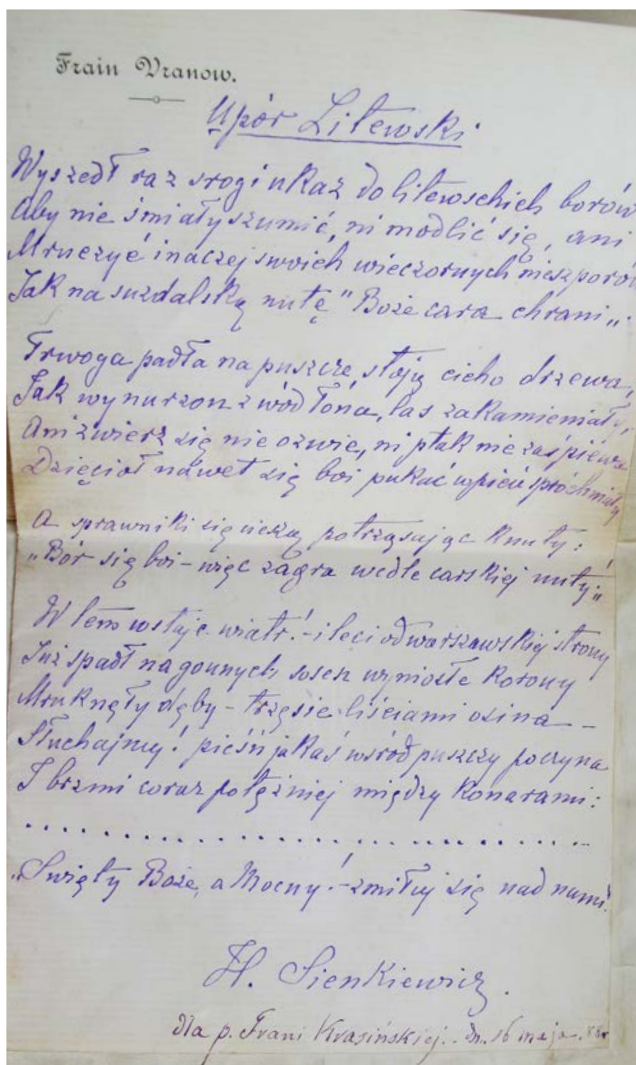 Frain Vranow.
Upór Litewski.
Wyszedł raz srogi ukaz do litewschich borów
Aby nie śmiały szumić, ni modlić się, ani
Mruczyć inaczej swoich wieczornych nieszporów
Jak na suzdalską nutę "Boże cara chrani".
Trwoga padła na puszcze stoją cicho drzewa,
Jak wynurzon z wód łona, las zakamieniały,
Ani zwierz się nie ozwie, ni ptak nie zaśpiewa
Dzięcioł nawet się boi pukać w pień spróchniały
A sprawniki się cieszą potrząsając knuty:
"Bór się boi – więc zagra wedle carskiej nuty"
W tem wstaje wiatr! – i leci od warszawskiej strony
Już spadł na gonnych sosen wyniosłe korony
Mruknęły dęby – trzęsie liściami osina –
Słuchajmy! pieśń jakaś wśród puszczy poczyna
I brzmi coraz potężniej między konarami:
..............................
"Święty Boże, a Mocny! – zmiłuj się nad nami!
H. Sienkiewicz.
dla p. Frani Krasińskiej. dn. 16 maja